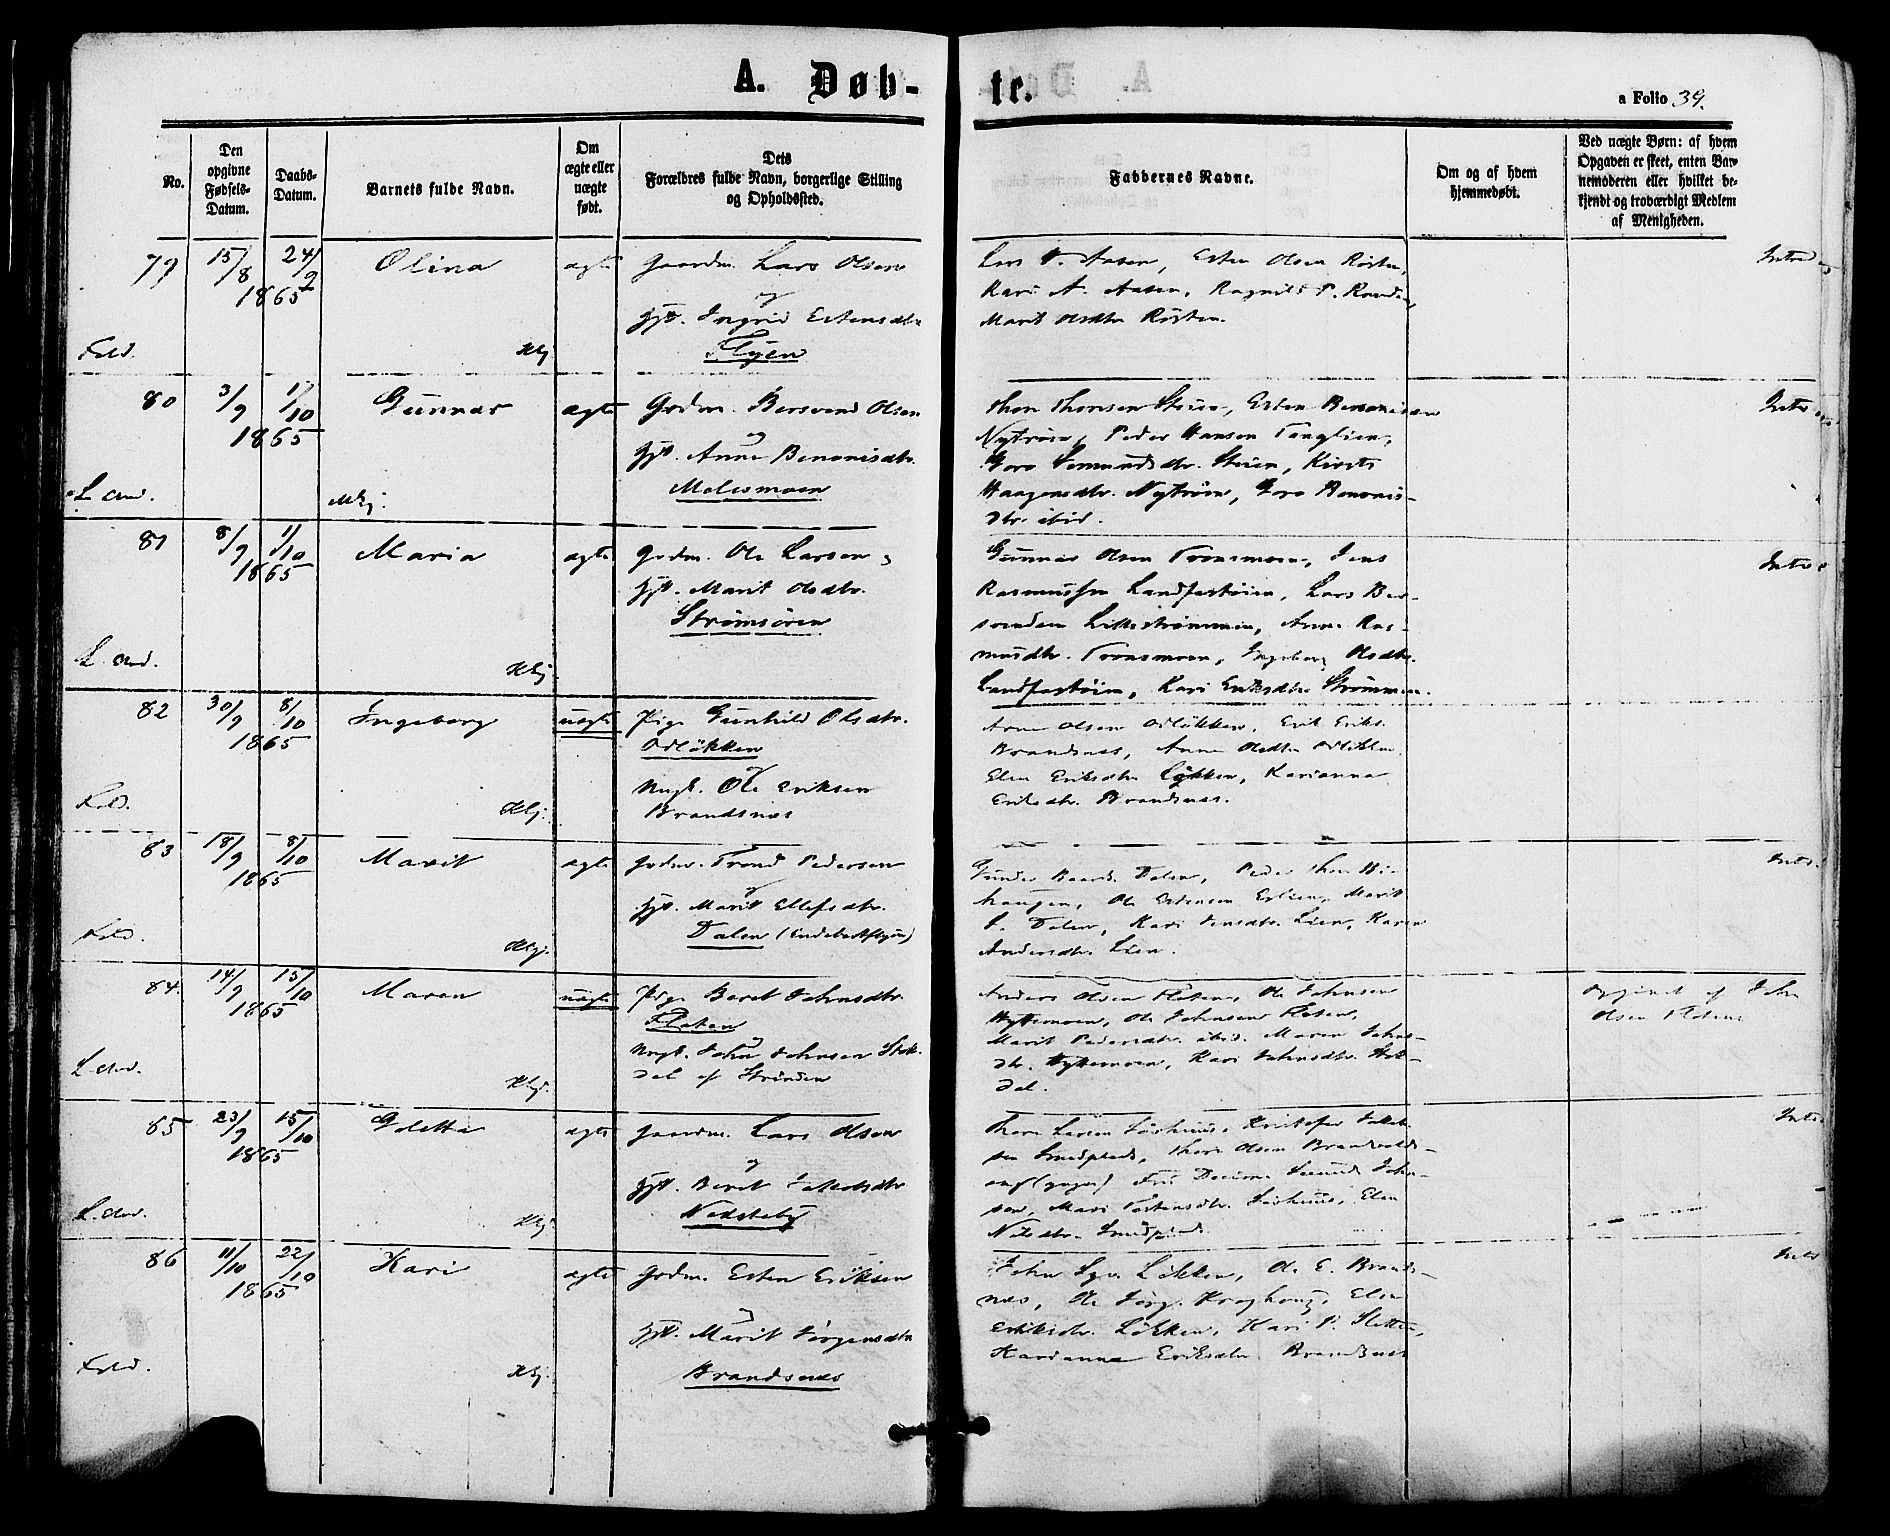 A. Døb-
te.
a Folio 39.
No.
Den
opgivne
Fødsels-
Datum.
Daabs-
Datum.
Barnets fulde Navn.
Om
ægte eller
uægte
født.
Dets
Forældres fulde Navn, borgerlige Stilling
og Opholdssted.
Faddernes Navne.
Om og af hvem
hjemmedøbt.
Ved uægte Børn: af hvem
Opgaven er skeet, enten Bar-
nemoderen eller hvilket be-
kjendt og troværdigt Medlem
af Menigheden.
79
15/8
24/9
1865
Olina
ægte
Gaardm. Lars Olsen
og
Ingrid Estensdtr
Flyen
Fold.
Hkj
Lars Aasen, Esten Olsen Røsten,
Kari A. Aasen, Ragnild P.
Marit Olsdtr Røsten.
80
3/9
1/10
1865
Gunnar
ægte
Grdm. Bersvend Olsen
og
Anne Benonisdtr.
Melesmoen
Mkj.
Thore Thoresen Steien, Esten Benonisen
Nytrøen, Peder Hansen Tanglien,
Goro Semundsdtr. Steien, Kirsti
Haagensdtr. Nytrøen, Goro Benonis-
dtr. ibid.
81
8/9
1/10
1865
Maria
ægte
Grdm. Ole Larsen
Marit Olsdtr.
Strømsøren
Hkj
Gunnar Olsen Tronsmoen, Jens
Rasmussen Landfastøien, Lars Ber-
svendsen Lillestrømmen, Anne Ras-
musdtr. Tronsmoen, Ingeborg Olsdtr.
Landfastøien, Kari Eriksdtr Strømmen.
82
30/9
8/10
1865
Ingeborg
uægte
Pige Gunhild Olsdtr.
Odløkken
og
Ungk. Ole Eriksen
Brandsnes
Fold.
Hkj.
Arne Olsen Odløkken, Erik Eriks.
Brandsnes, Anne Olsdtr
Elen Eriksdtr Løkken, Karianna
Eriksdtr. Brandsnes.
83
18/9
8/10
1865
Marit
ægte
Grdm. Trond Pedersen
og
Marit Ellefsdtr.
Dalen
Fold.
Hkj.
Dalen, Peder
haugen, Ole Estensen Eglien, Marit
J. Dalen, Kari Jensdtr. Lien, Karen
Andersdtr. Lien.
84.
14/9
15/10
1865
Maren
uægte
Pige Beret Johnsdtr
Floten
og
Ungk. John Johnsen Stok-
dal af Strinden
Hkj.
Anders Olsen Floten, Ole Johnsen
Hyttemoen, Ole Johnsen Floten,
Marit Pedersdtr. ibid. Maren Johns-
dtr. Hyttemoen, Kari Johnsdtr. Stok-
dal.
Opgivet af John
Olsen Floten
85
23/9
15/10
1865
Goletta
ægte
Gaardm. Lars Olsen
og
Beret Jakobsdtr
Nedsteby
Hkj
Thore Larsen Sørhuus, Kristofer
Smedplads, Thore Olsen
John-
sen, Mari Sørhuus, Elen
Nilsdtr. Smedplads.
86
11/10
22/10
1865
Kari
ægte
Grdm. Esten Eriksen
og
Marit Jørgensdtr
Brandsnes
Fold.
Hkj.
John Løkken, Ole E. Brands-
nes, Ole Jørg. Kroghaug, Elen
Eriksdtr. Løkken, Kari P. Sletten,
Karianna Eriksdtr Brandsnes